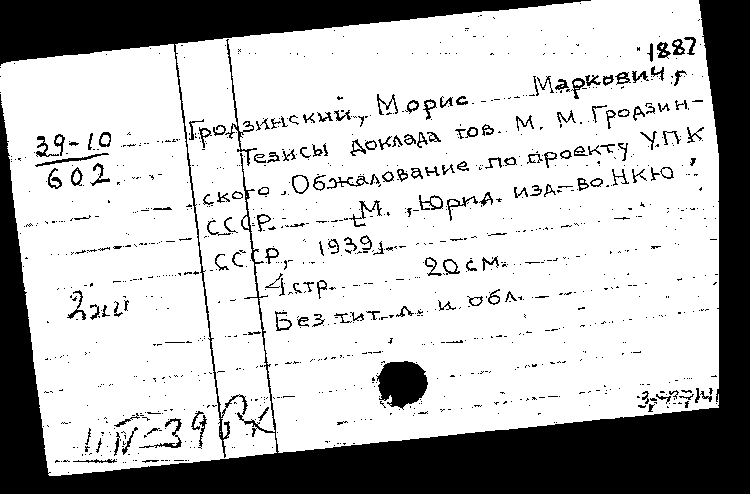 1887
Гродзинский, Морис Маркович,
39-10
602
Тезисы доклада тов. М. М. Гродзин-
ского. Обжалование по проекту УПК
СССР. М., Юрид. изд-во НКЮ
СССР, 1939.
4 стр. 20 см.
2 экз
Без тит. л. и обл.
11 IV-39